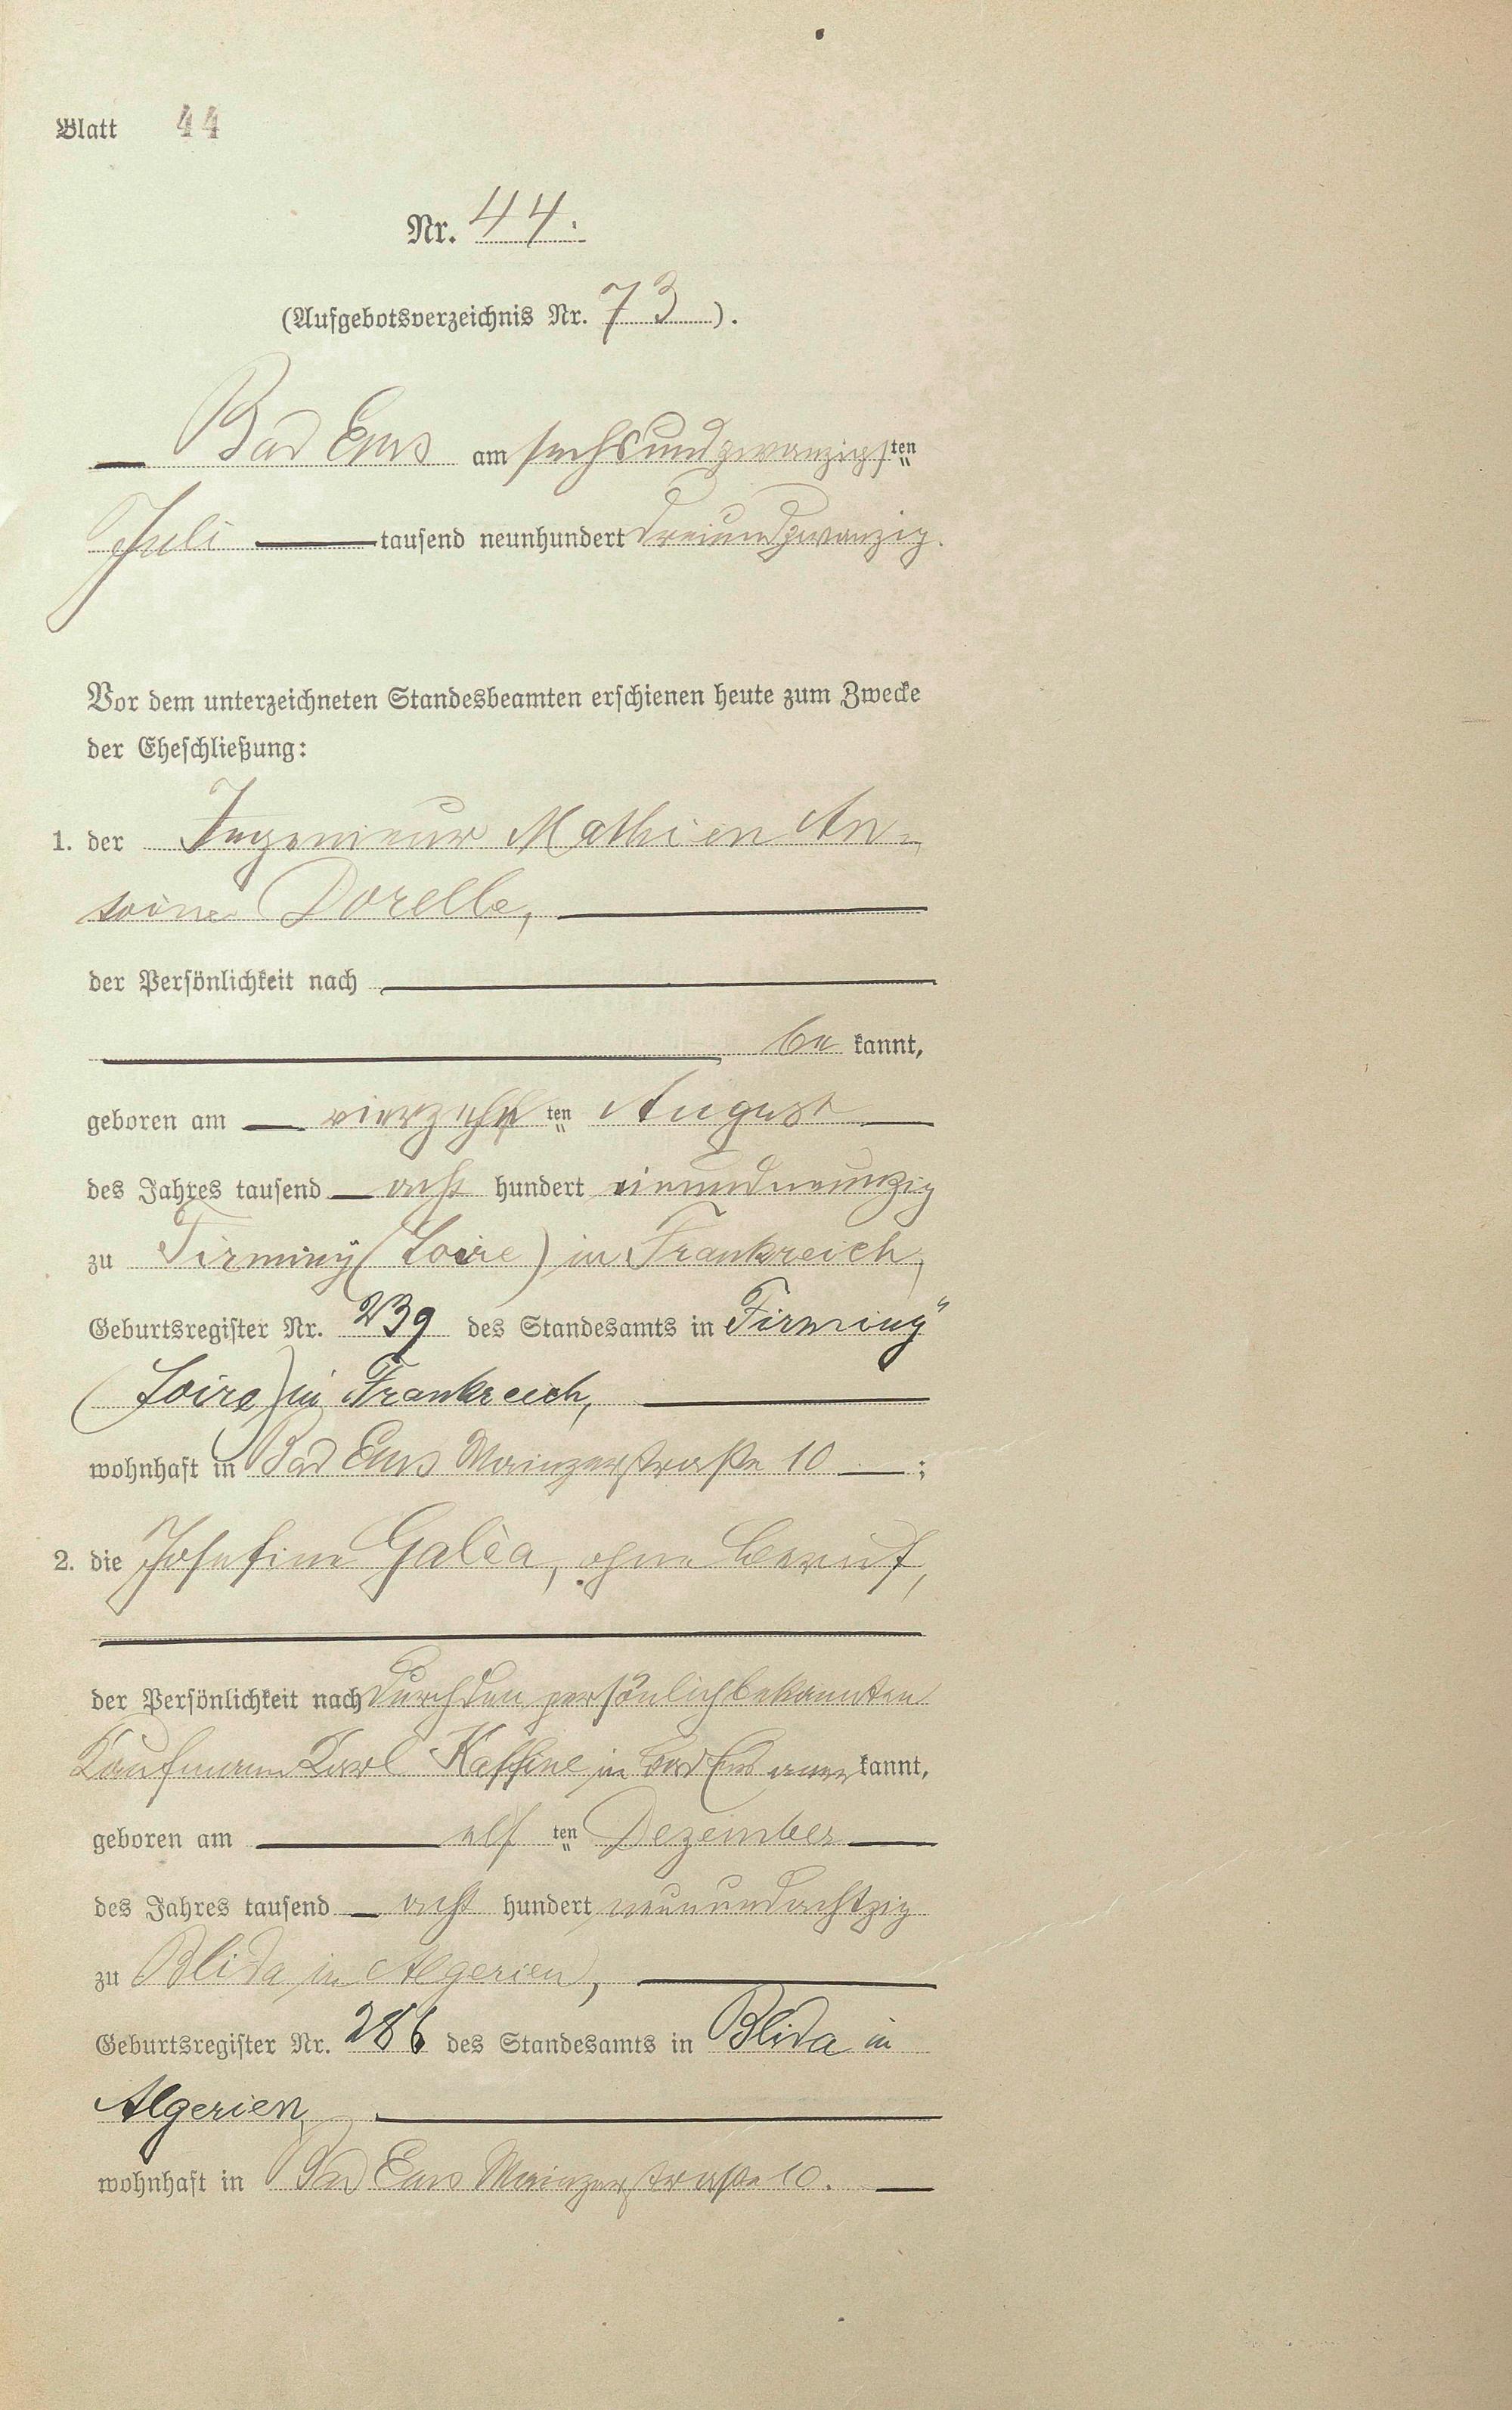 Blatt 44
Nr. 44.
(Aufgebotsverzeichnis Nr. 73).
Bad Ems am sechsundzwanzigsten
Juli tausend neunhundert dreiundzwanzig.
Vor dem unterzeichneten Standesbeamten erschienen heute zum Zwecke
der Eheschließung:
1. der Ingenieur Mathieu An-
toine Dorelle,
der Persönlichkeit nach
be kannt,
geboren am vierzehnten August
des Jahres tausend acht hundert einundneunzig
zu Firminy (Loire) in Frankreich,
Geburtsregister Nr. 239 des Standesamts in Firminy
(Loire) in Frankreich,
wohnhaft in Bad Ems Mainzerstraße 10 ;
2. die Josefine Galéa, ohne Beruf,
der Persönlichkeit nach durch den persönlich bekannten
Kaufmann Karl in Bad Ems anerkannt,
geboren am elf ten Dezember
des Jahres tausend acht hundert neunundachtzig
zu Blida in Algerien,
Geburtsregister Nr. 286 des Standesamts in Blida in
Algerien,
wohnhaft in Bad Ems Mainzerstraße 10.